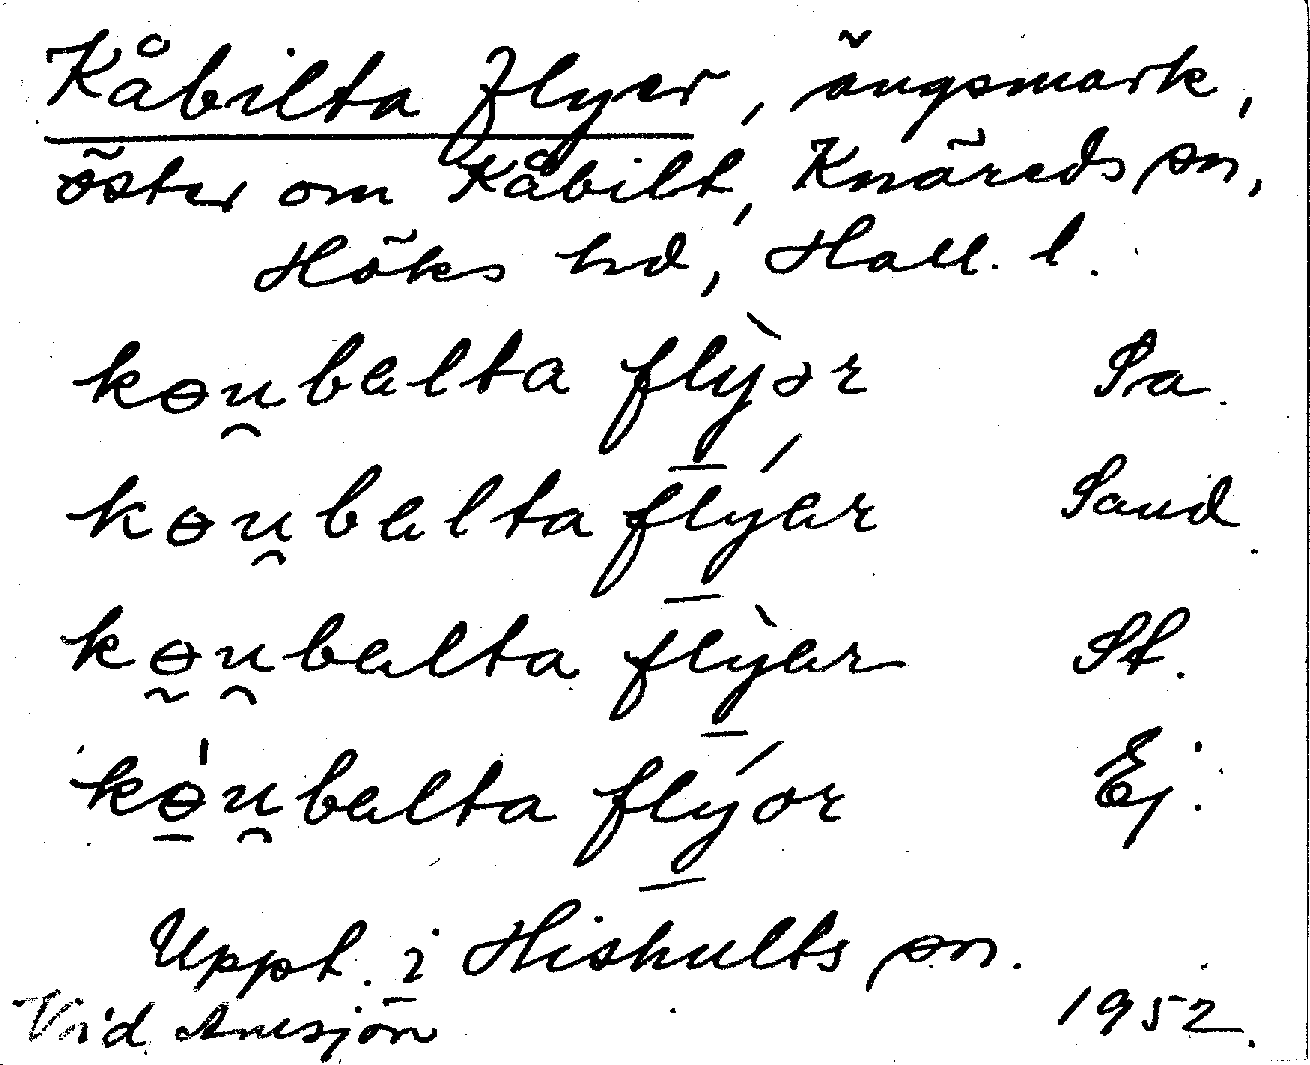 Kåbilta flyer, ängsmark,
öster om Kåbilt, Knäreds sn,
Höks hd, Hall. l.
kɵu̯balta flỳ̱ər Sa.
kɵu̯balta flý̱ar Sand.
kɵ̰u̯balta flỳ̱ar St.
kɵ̱̍u̯balta flý̱or Ej.
Uppt. i Hishults sn.
Vid Amsjön 1952.